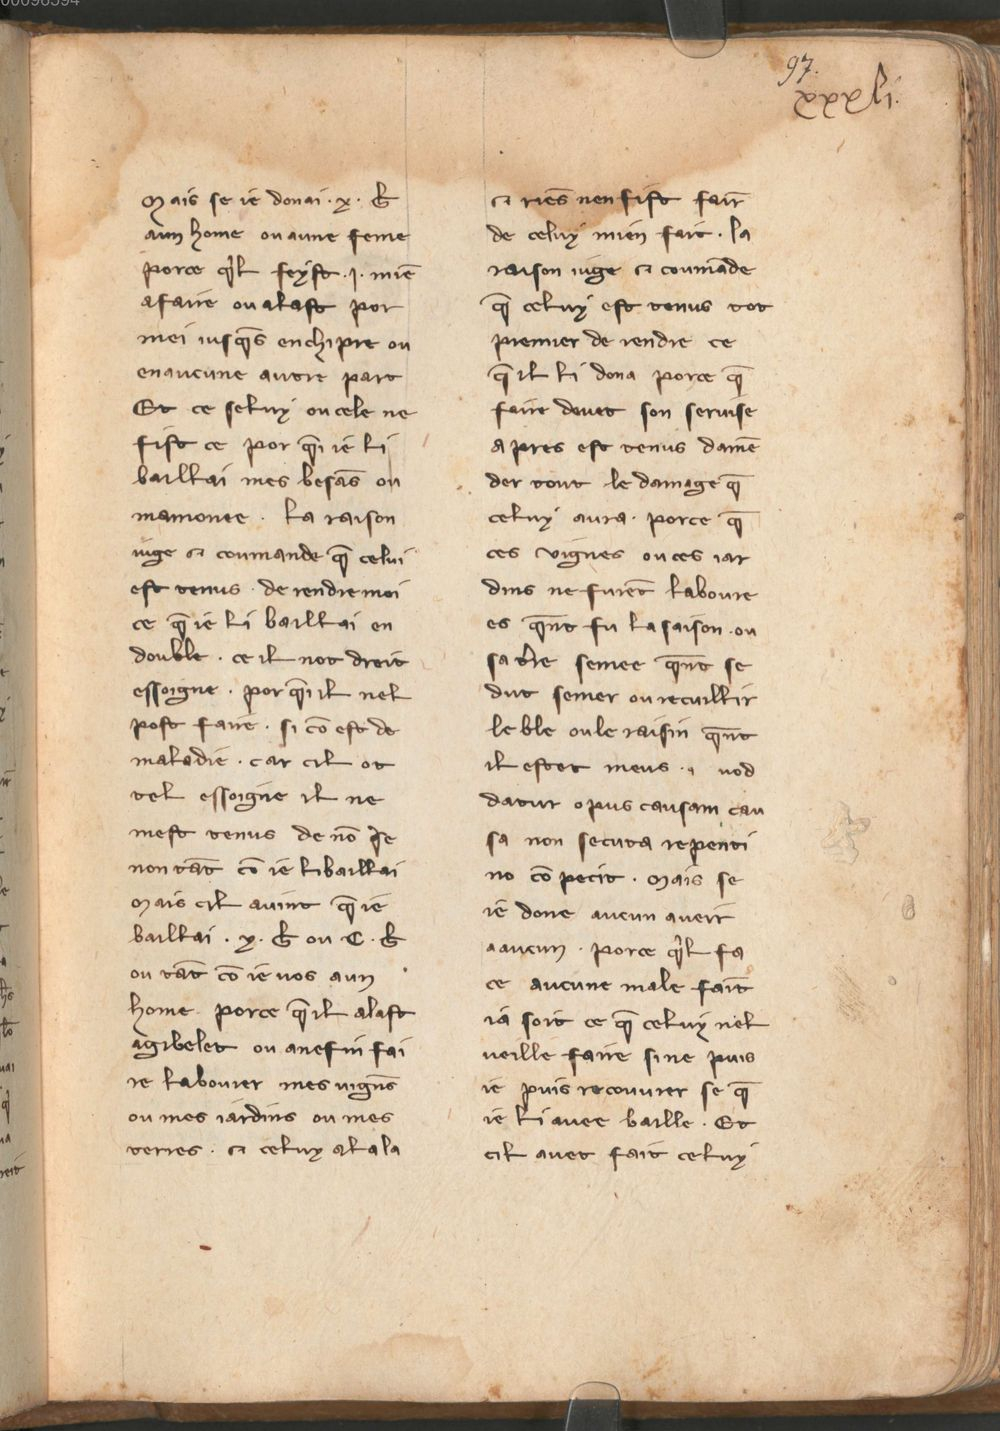 00096594
97.
xxxvi.
Mais se ie donai · x · b
aun home ou aune feme
porce q̃l feyst · j · miẽ
afaire ou alast por
mei iusq̃s enchipre ou
enaucune autre part
Et ce seluy ou cele ne
fist ce por q̃i ie li
baillai mes besãs ou
mamonee · La raison
iuge et coumande q̃ celui
est tenus · de rendre moi
ce q̃ ie li baillai en
double · ce il not droit
essoigne · por q̃i il nel
post faire · si cõ est de
maladie · car cil ot
tel essoigne il ne
mest tenus de nõ q̃e
non tãt cõ ie li baillai
Mais cil avint q̃ ie
baillai · x · b ou C · b
ou tãt cõ ie vos aun
home porce q̃ il alast
agibelet ou anefin fai
re labourer mes vignẽs
ou mes iardins ou mes
terres · et celuy al ala
et riẽs nen fist fair̃
de celuy mien fait · la
raison iuge et coumãde
q̃ celuy est tenus tot
premier de rendre ce
q̃ il li dona porce q̃
faire devet son servise
apres est tenus damẽ
der tout le damage q̃
celuy aura · porce q̃
ces vignes ou ces iar
dins ne furẽt laboure
es q̃nt fu la saison · ou
sa tr̃e semee q̃nt se
dut semer ou recuillir
le ble ou le raisin q̃nt
il estet meus · quod
datur opus causam cau
sa non secuta repenti
no cõpecit · Mais se
ie done aucun aveir
a aucun · porce q̃l fa
ce aucune male fait
ia soit ce q̃ celuy nel
veille faire si ne puis
ie puis recouvrer se q̃
ie li avee baille · Et
cil avet fait celuy